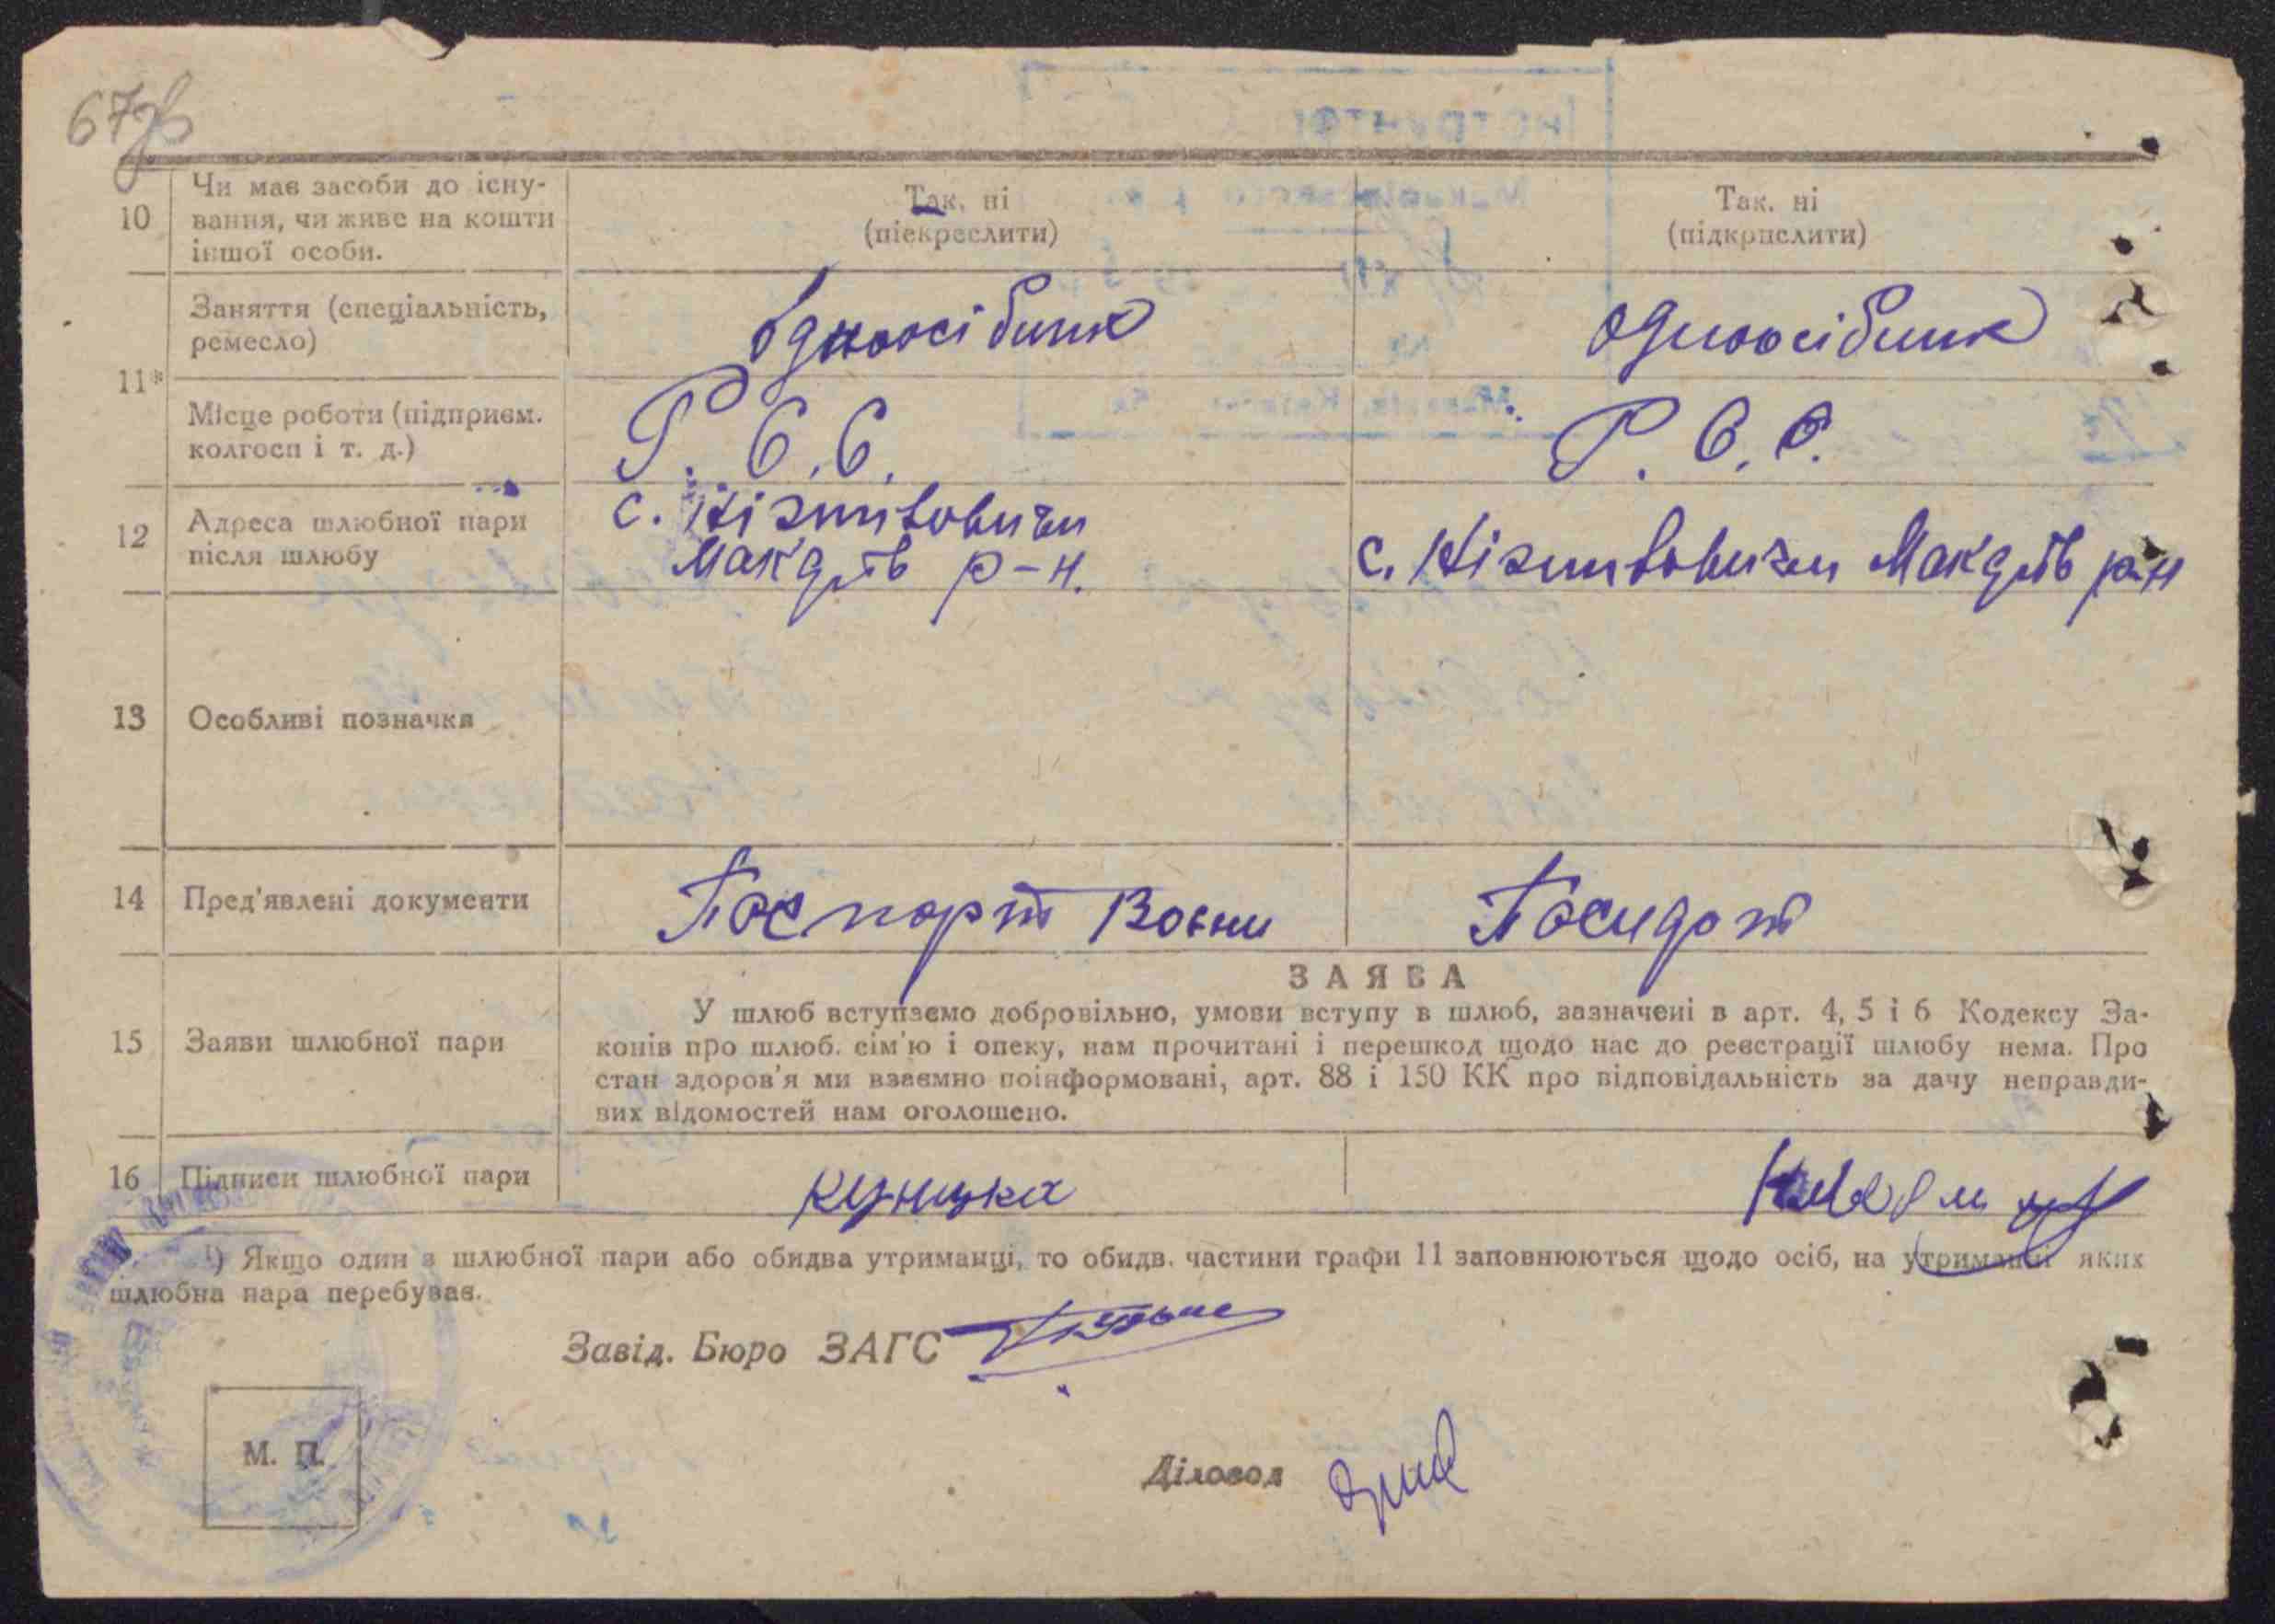 10 Чи має засоби до існу-
вання, чи живе на кошти
іншої особи.
Так, ні
(піекреслити)
Так, ні
(підкрпслити)
11*
Заняття (спеціальність,
ремесло)
одноосібник
одноосібник
Місце роботи (підприєм.
колгосп і т. д.)
Р. С. С.
Р. С. С.
12 Адреса шлюбної пари
після шлюбу
с.
р-н.
с. р-н
13 Особливі позначки
14 Пред'явлені документи
Паспорт
15 Заяви шлюбної пари
ЗАЯВА
У шлюб вступаємо добровільно, умови вступу в шлюб, зазначені в арт. 4, 5 і 6 Кодексу За-
конів про шлюб. сім'ю і опеку, нам прочитані і перешкод щодо нас до реєстрації шлюбу нема. Про
стан здоров'я ми взаємно поінформовані, арт. 88 і 150 КК про відповідальність за дачу неправди-
вих відомостей нам оголошено.
16 Підписи шлюбної пари
¹) Якщо один з шлюбної пари або обидва утриманці, то обидв. частини графи 11 заповнюються щодо осіб, на утриманні яких
шлюбна пара перебуває.
Завід. Бюро ЗАГС
М. П.
Діловод